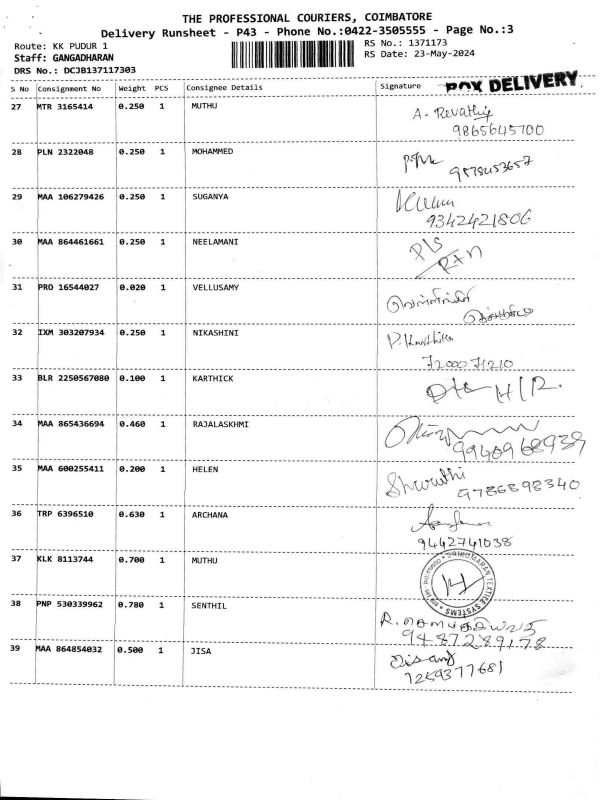 THE PROFESSIONAL COURIERS, COIMBATORE
Delivery Runsheet - P43 - Phone No.:0422-3505555 - Page No.:3
Route: KK PUDUR 1
Staff: GANGADHARAN
DRS No.: DCJB137117303
RS No.: 1371173
RS Date: 23-May-2024
S No Consignment No Weight PCS Consignee Details Signature BOX DELIVERY
27 MTR 3165414 0.250 1 MUTHU A. Revathy
9865645700
28 PLN 2322048 0.250 1 MOHAMMED
9578453657
29 MAA 106279426 0.250 1 SUGANYA
9342421806
30 MAA 864461661 0.250 1 NEELAMANI
31 PRO 16544027 0.020 1 VELLUSAMY
32 IXM 303207934 0.250 1 NIKASHINI P. Karthika
7200071210
33 BLR 2250567080 0.100 1 KARTHICK
34 MAA 865436694 0.460 1 RAJALASKHMI
9940968939
35 MAA 600255411 0.200 1 HELEN Shruthi
9786898340
36 TRP 6396510 0.630 1 ARCHANA
9442741038
37 KLK 8113744 0.700 1 MUTHU
38 PNP 530339962 0.780 1 SENTHIL
9487289178
39 MAA 864854032 0.500 1 JISA
7259377681